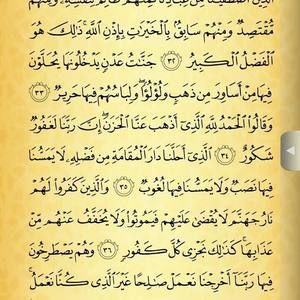 ٱلَّذِينَ ٱصۡطَفَيۡنَا مِنۡ عِبَادِنَاۖ فَمِنۡهُمۡ ظَالِمٞ لِّنَفۡسِهِۦ وَمِنۡهُم
مُّقۡتَصِدٞ وَمِنۡهُمۡ سَابِقُۢ بِٱلۡخَيۡرَٰتِ بِإِذۡنِ ٱللَّهِۚ ذَٰلِكَ هُوَ
ٱلۡفَضۡلُ ٱلۡكَبِيرُ ٣٢ جَنَّٰتُ عَدۡنٖ يَدۡخُلُونَهَا يُحَلَّوۡنَ
فِيهَا مِنۡ أَسَاوِرَ مِن ذَهَبٖ وَلُؤۡلُؤٗاۖ وَلِبَاسُهُمۡ فِيهَا حَرِيرٞ ٣٣
وَقَالُواْ ٱلۡحَمۡدُ لِلَّهِ ٱلَّذِيٓ أَذۡهَبَ عَنَّا ٱلۡحَزَنَۖ إِنَّ رَبَّنَا لَغَفُورٞ
شَكُورٌ ٣٤ ٱلَّذِيٓ أَحَلَّنَا دَارَ ٱلۡمُقَامَةِ مِن فَضۡلِهِۦ لَا يَمَسُّنَا
فِيهَا نَصَبٞ وَلَا يَمَسُّنَا فِيهَا لُغُوبٞ ٣٥ وَٱلَّذِينَ كَفَرُواْ لَهُمۡ
نَارُ جَهَنَّمَ لَا يُقۡضَىٰ عَلَيۡهِمۡ فَيَمُوتُواْ وَلَا يُخَفَّفُ عَنۡهُم مِّنۡ
عَذَابِهَاۚ كَذَٰلِكَ نَجۡزِي كُلَّ كَفُورٖ ٣٦ وَهُمۡ يَصۡطَرِخُونَ
فِيهَا رَبَّنَآ أَخۡرِجۡنَا نَعۡمَلۡ صَٰلِحًا غَيۡرَ ٱلَّذِي كُنَّا نَعۡمَلُۚ